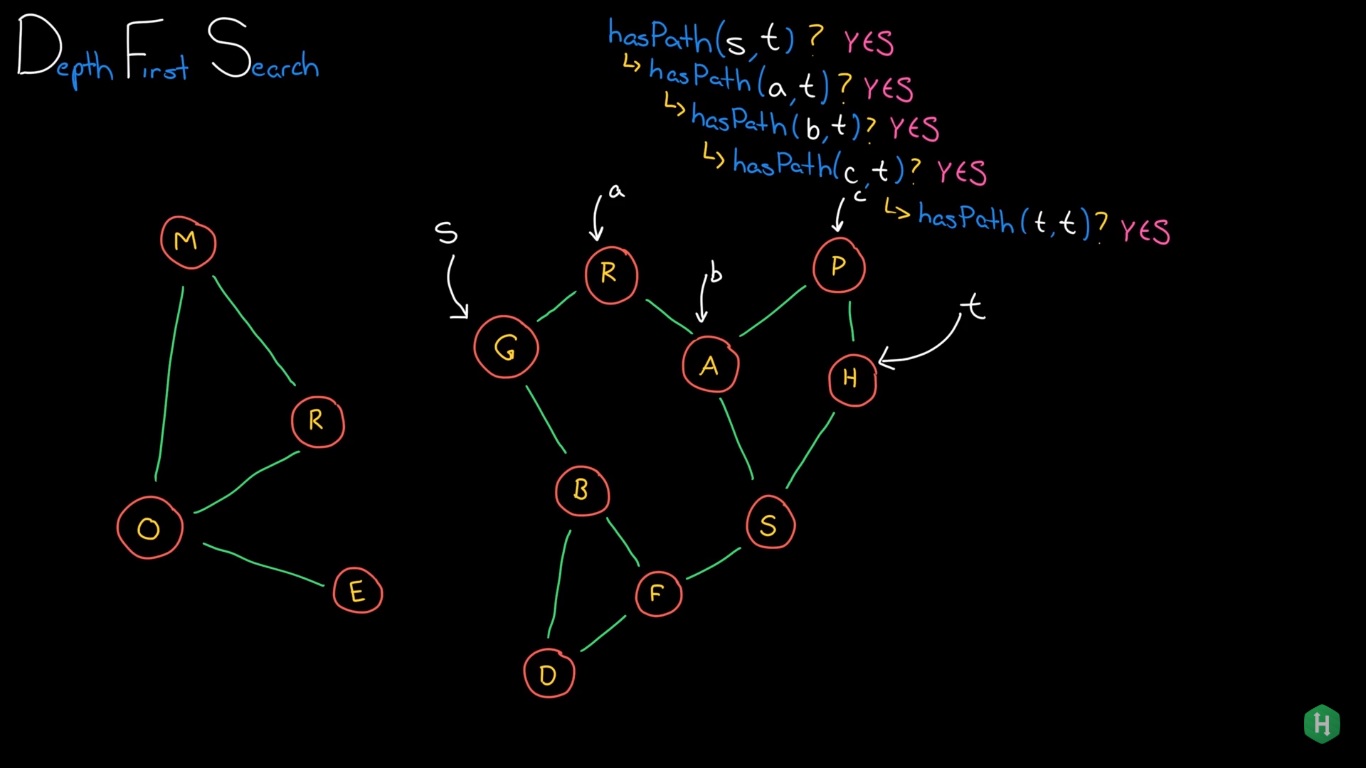 Depth First Search
hasPath(s,t)? YES
↳hasPath(a,t)? YES
↳hasPath(b,t)? YES
↳hasPath(c,t)? YES
↳hasPath(t,t)? YES
a
c
s
M
R
P
b
t
G
A
H
R
B
O
S
E
F
D
H